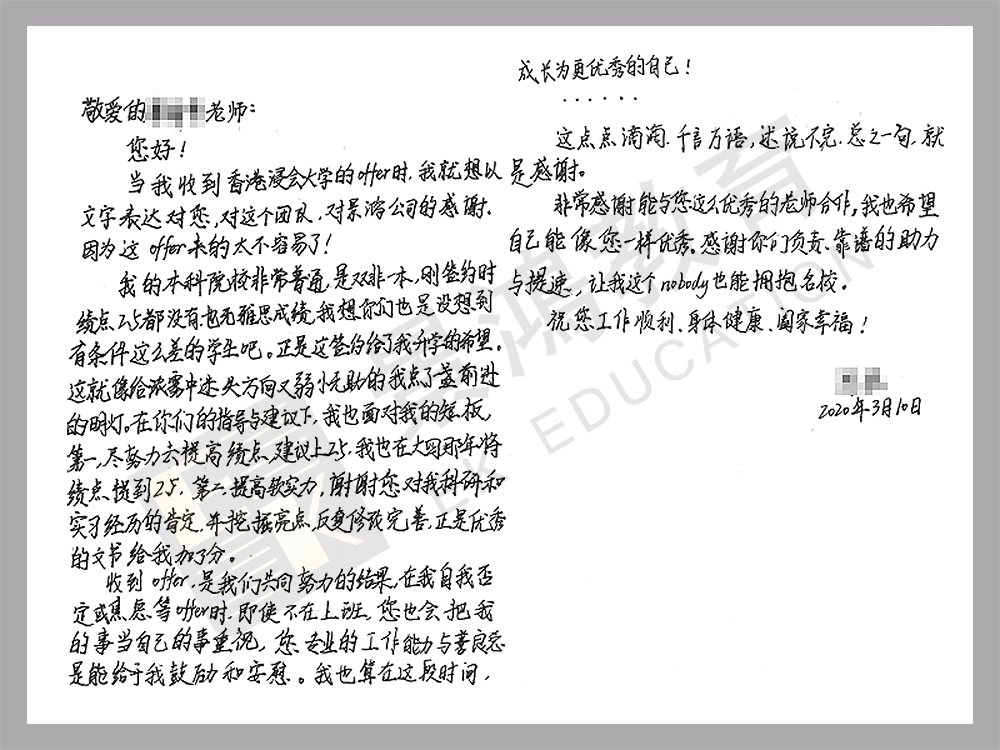 敬爱的 老师:
您好!
当我收到香港浸会大学的offer时,我就想以
文字表达对您,对这个团队,对景鸿公司的感谢.
因为这offer来的太不容易了!
我的本科院校非常普通,是双非一本,刚签约时
绩点2.5都没有,也无雅思成绩,我想你们也是没想到
有条件这么差的学生吧。正是这签约给了我升学的希望,
这就像给浓雾中迷失方向又弱小无助的我点了盏前进
的明灯。在你们的指导与建议下,我也面对我的短板,
第一,尽努力去提高绩点,建议上2.5,我也在大四那年将
绩点提到2.5,第二,提高软实力,谢谢您对我科研和
实习经历的肯定,并挖掘亮点,反复修改完善,正是优秀
的文书给我加了分。
收到offer,是我们共同努力的结果,在我自我否
定或焦虑等offer时,即使不在上班,您也会把我
的事当自己的事重视,您专业的工作能力与善良总
是能给予我鼓励和安慰。我也算在这段时间,
成长为更优秀的自己!
......
这点点滴滴,千言万语,述说不完,总之一句,就
是感谢。
非常感谢能与您这么优秀的老师合作,我也希望
自己能像您一样优秀,感谢你们负责、靠谱的助力
与提速,让我这个nobody也能拥抱名校。
祝您工作顺利、身体健康、阖家幸福!
2020年3月10日
景鸿教育
EK EDUCATION